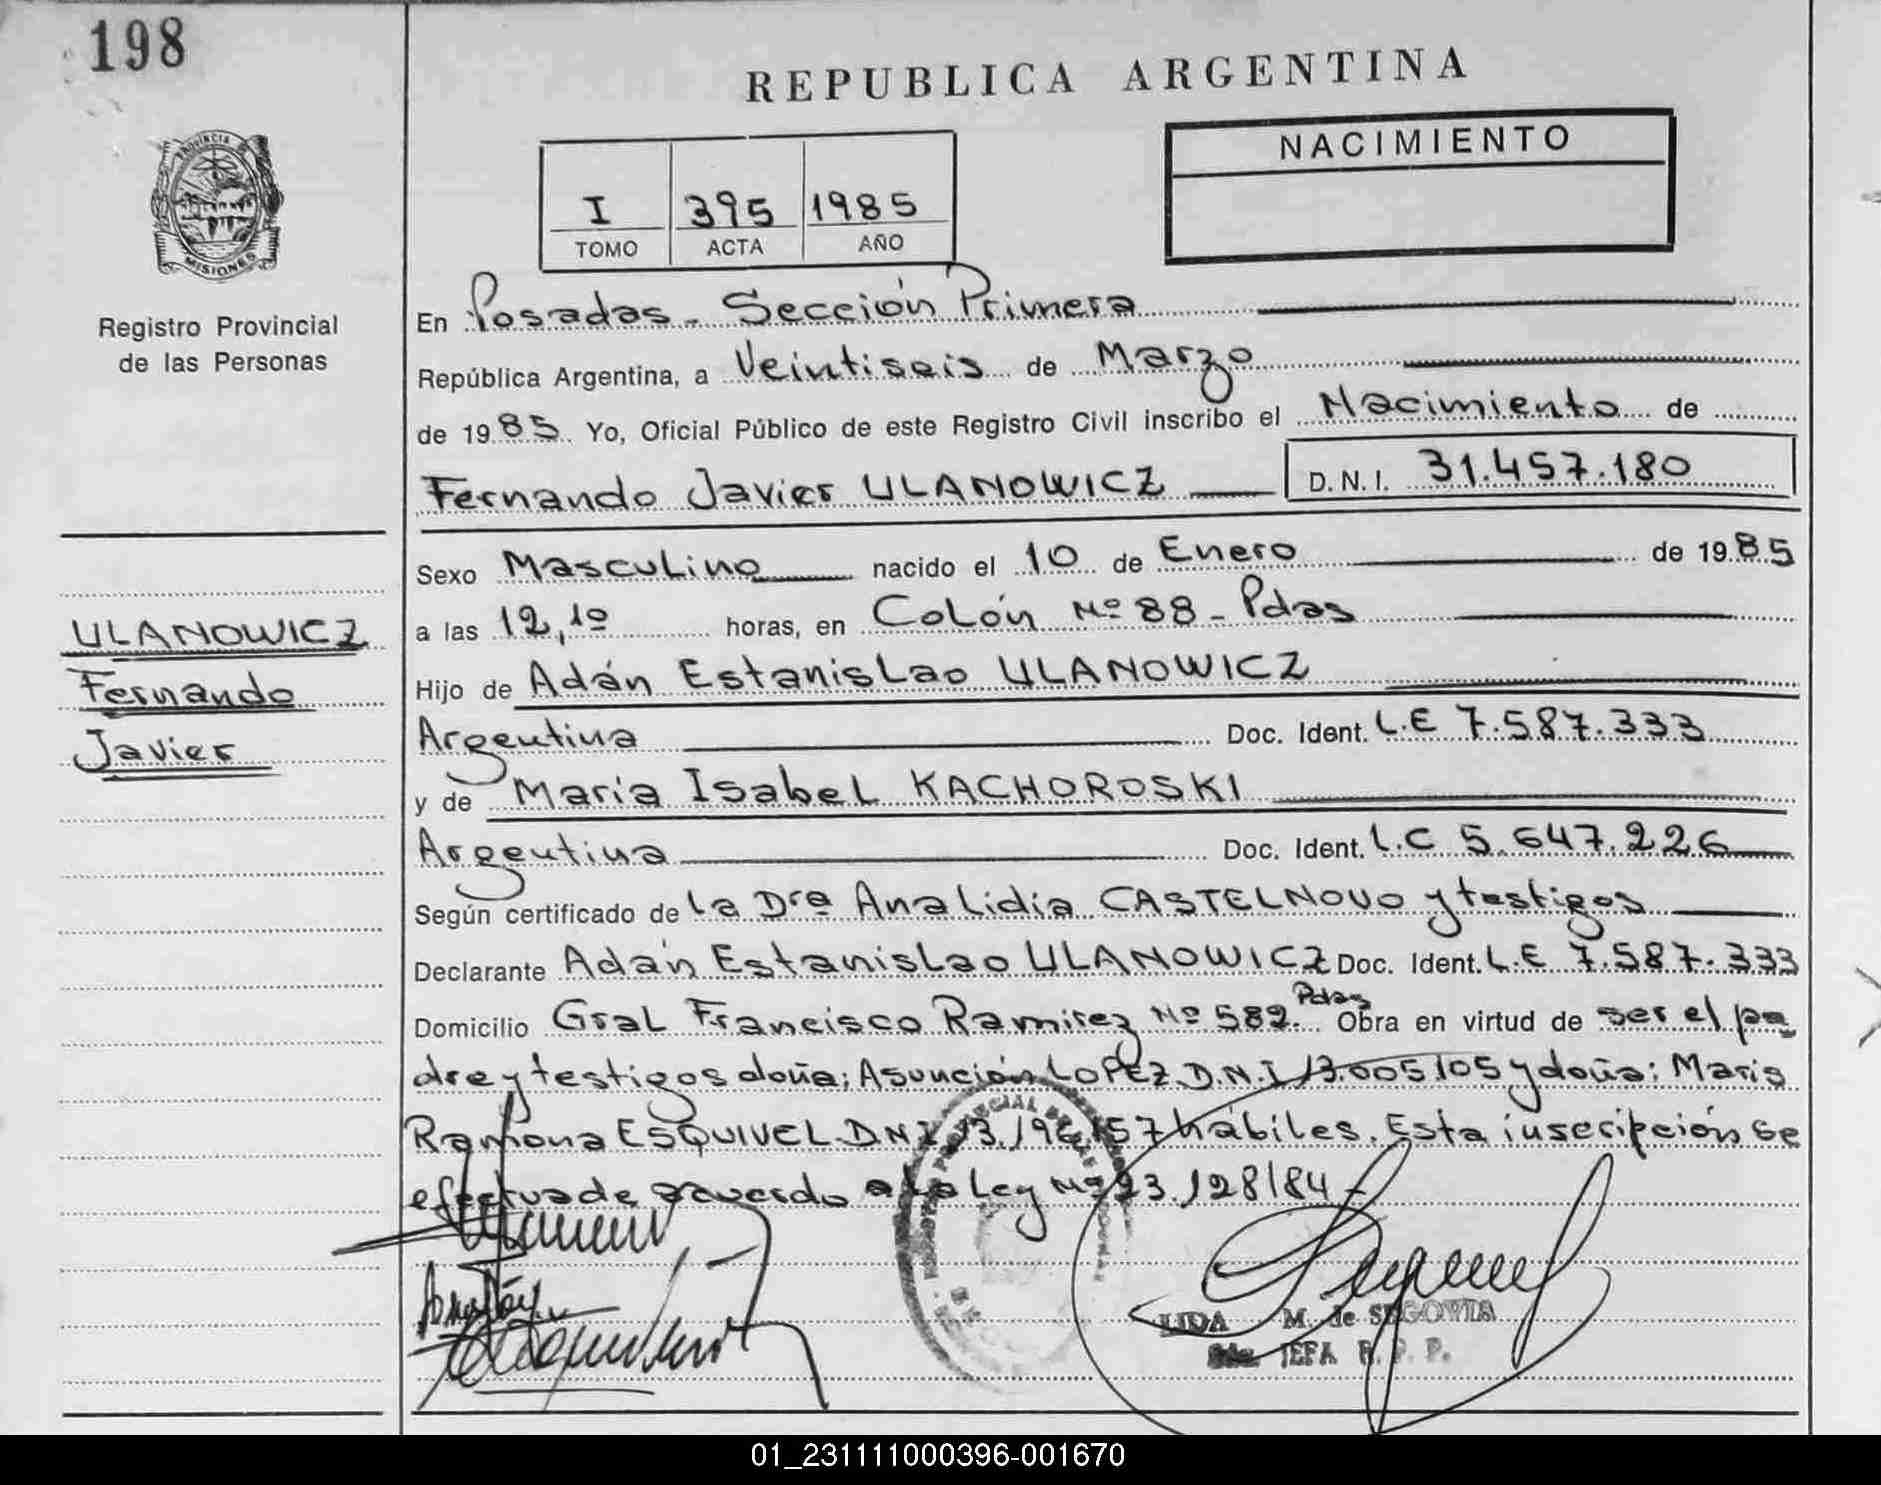 198
REPUBLICA ARGENTINA
NACIMIENTO
I 395 1985
TOMO ACTA AÑO
PROVINCIA DE
MISIONES
Registro Provincial
de las Personas
En Posadas - Sección Primera
República Argentina, a Veintiseis de Marzo
de 1985 Yo, Oficial Público de este Registro Civil inscribo el Nacimiento de
Fernando Javier ULANOWICZ D.N.I. 31.457.180
Sexo Masculino nacido el 10 de Enero de 1985
ULANOWICZ
Fernando
Javier
a las 12,10 horas, en Colón Nº 88 - Pdas
Hijo de Adán Estanislao ULANOWICZ
Argentina Doc. Ident. L.E 7.587.333
y de María Isabel KACHOROSKI
Argentina Doc. Ident. L.C 5.647.226
Según certificado de la Drª Analidia CASTELNOVO y testigos
Declarante Adán Estanislao ULANOWICZ Doc. Ident. L.E 7.587.333
Domicilio Gral Francisco Ramirez Nº 582. Pdas Obra en virtud de ser el pa
dre y testigos doña; Asunción LOPEZ D.N.I 13.005.105 y doña: Maria
Ramona ESQUIVEL D.N.I 13.196.157 hábiles. Esta inscripción se
efectua de acuerdo a la Ley Nº 23.128/84 -
LIDA M. de SEGOVIA
JEFA R. P. P.
01_231111000396-001670